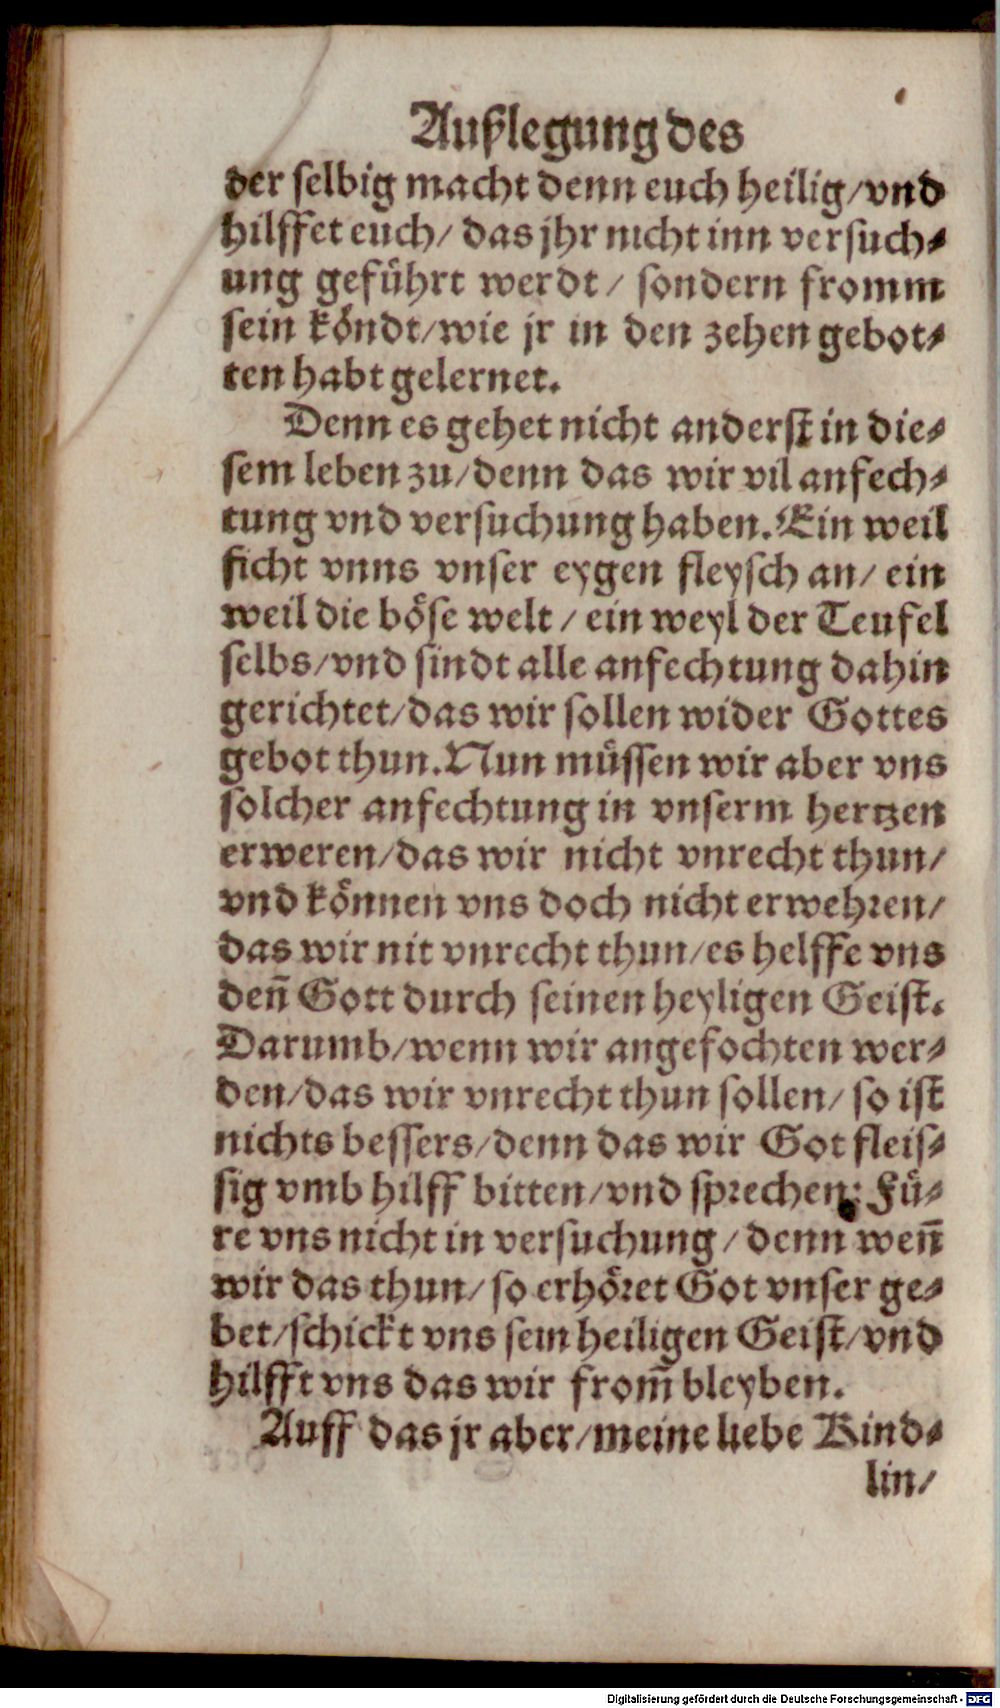 Außlegung des
der selbig macht denn euch heilig/vnd
hilffet euch/ das jhr nicht inn versuch⸗
ung geführt werdt/ sondern fromm
sein köndt/wie jr in den zehen gebot⸗
ten habt gelernet.
Denn es gehet nicht anderst in die⸗
sem leben zu/denn das wir vil anfech⸗
tung vnd versuchung haben. Ein weil
ficht vnns vnser eygen fleysch an/ ein
weil die böse welt/ ein weyl der Teufel
selbs/vnd sindt alle anfechtung dahin
gerichtet/das wir sollen wider Gottes
gebot thun. Nun müssen wir aber vns
solcher anfechtung in vnserm hertzen
erweren/das wir nicht vnrecht thun/
vnd können vns doch nicht erwehren/
das wir nit vnrecht thun/es helffe vns
den̄ Gott durch seinen heyligen Geist.
Darumb/wenn wir angefochten wer⸗
den/das wir vnrecht thun sollen/ so ist
nichts bessers/denn das wir Got fleis⸗
sig vmb hilff bitten/vnd sprechen: Fü⸗
re vns nicht in versuchung/ denn wen̄
wir das thun/ so erhöret Got vnser ge⸗
bet/schickt vns sein heiligen Geist/vnd
hilfft vns das wir from̄ bleyben.
Auff das jr aber/meine liebe Kind⸗
lin/
Digitalisierung gefördert durch die Deutsche Forschungsgemeinschaft - DFG